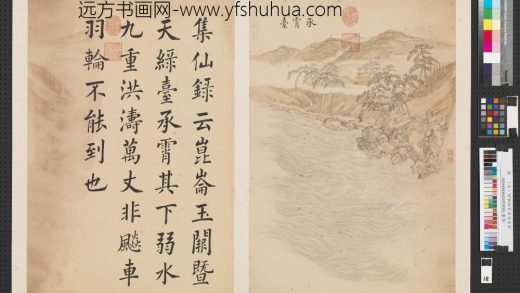 远方书画网-www.yfshuhua.com
承霄臺
集仙錄云崑崙玉闕暨
天綠臺承霄其下弱水
九重洪濤萬丈非飈車
羽輪不能到也